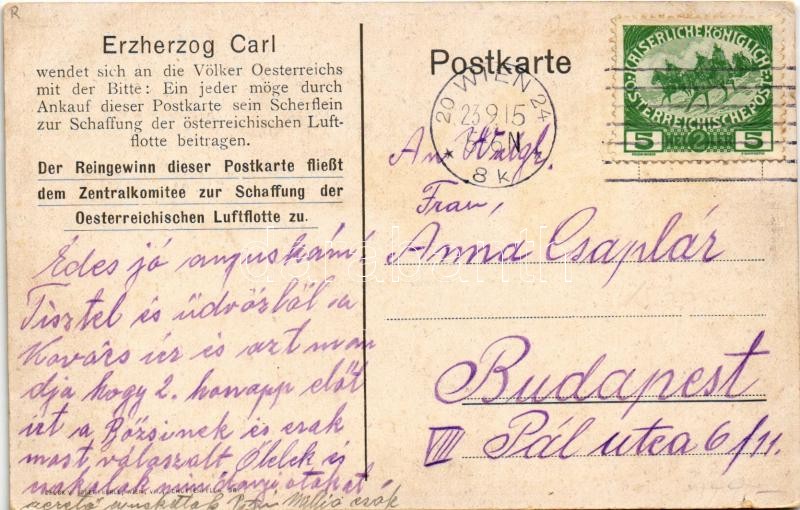 R
Erzherzog Carl
wendet sich an die Völker Oesterreichs
mit der Bitte: Ein jeder möge durch
Ankauf dieser Postkarte sein Scherflein
zur Schaffung der österreichischen Luft-
flotte beitragen.
Der Reingewinn dieser Postkarte fließt
dem Zentralkomitee zur Schaffung der
Oesterreichischen Luftflotte zu.
Édes jó anyuskám!
Tisztel és üdvözlöl a
Kovács ur és azt mon
dja hogy 2. honapp előt
irt a Bözsinek és csak
most válaszolt Ölelek és
csók
Postkarte
20 WIEN 24
23.9.15
8k
KAISERLICHE KÖNIGLICHE
ÖSTERREICHISCHE POST
5 5
An
Frau,
Anna Csaplár
Budapest
VIII Pál utca 6/11.